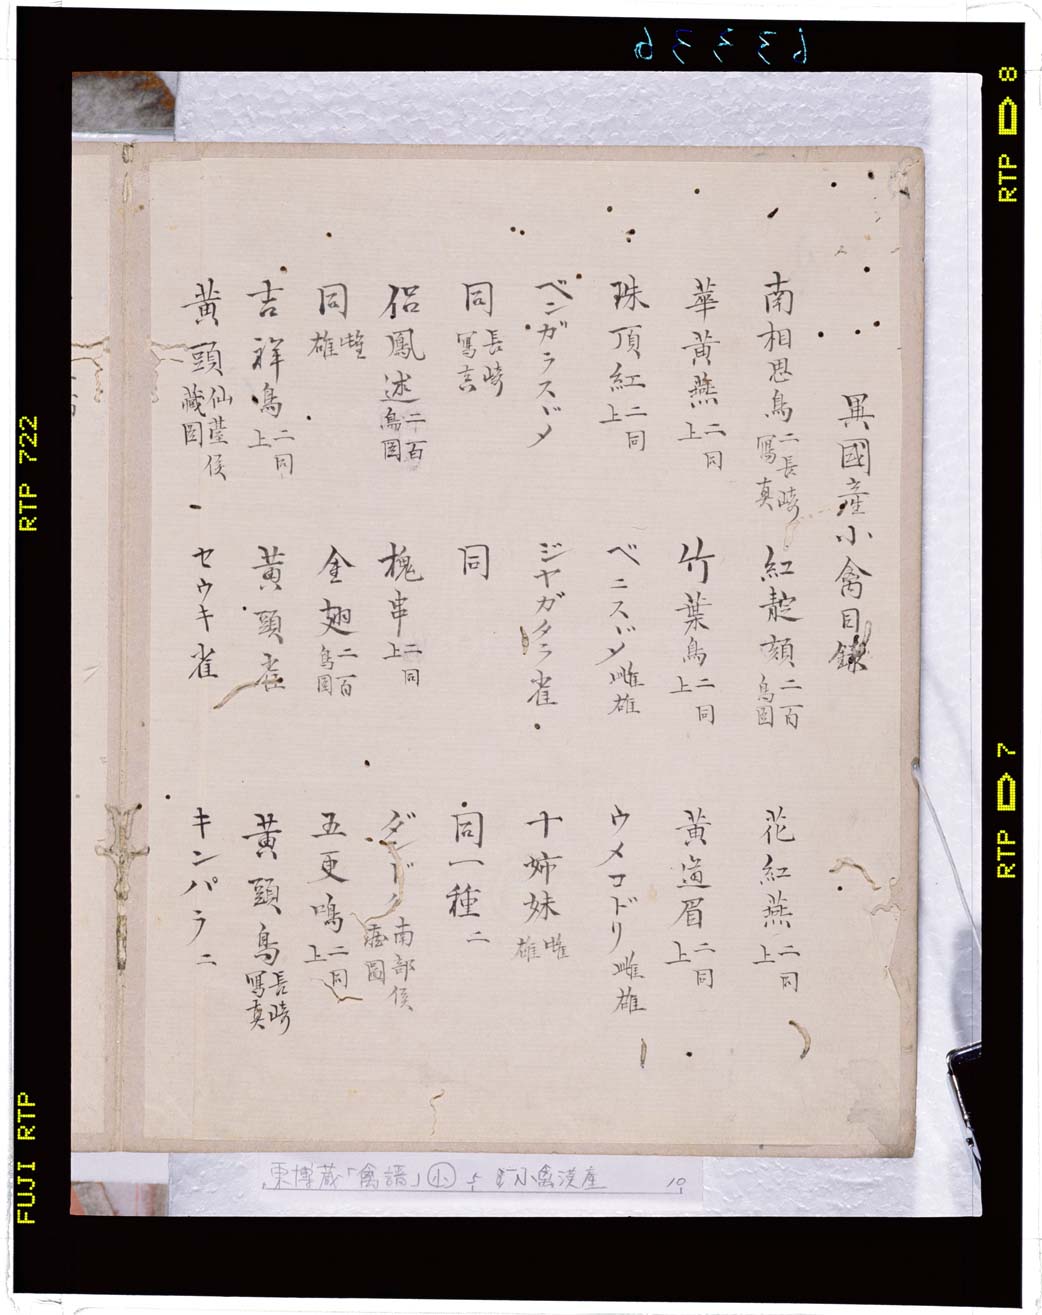 異國産小禽目録
南相思鳥 二 長崎寫真 紅靛頦 二 百鳥圖 花紅燕 二 同上
華黄燕 二 同上 竹葉鳥 二 同上 黄道眉 二 同上
珠頂紅 二 同上 ベニスヾメ 雌雄 ウメコドリ 雌雄
ベンガラスヾメ ジヤガタラ雀 十姉妹 雌雄
同 長崎寫真 同 同一種 二
侶鳳逑 二 百鳥圖 槐串 二 同上 ダンドク 南部侯藏圖
同 雌雄 金翅 二 百鳥圖 五更鳴 二 同上
吉祥鳥 二 同上 黄頭雀 黄頭鳥 長崎寫真
黄頭 仙臺侯藏圖 セウキ雀 キンパラ 二
東博蔵「禽譜」小 小禽漢産 10
63336
RTP 8
RTP 7
RTP 722
FUJI RTP